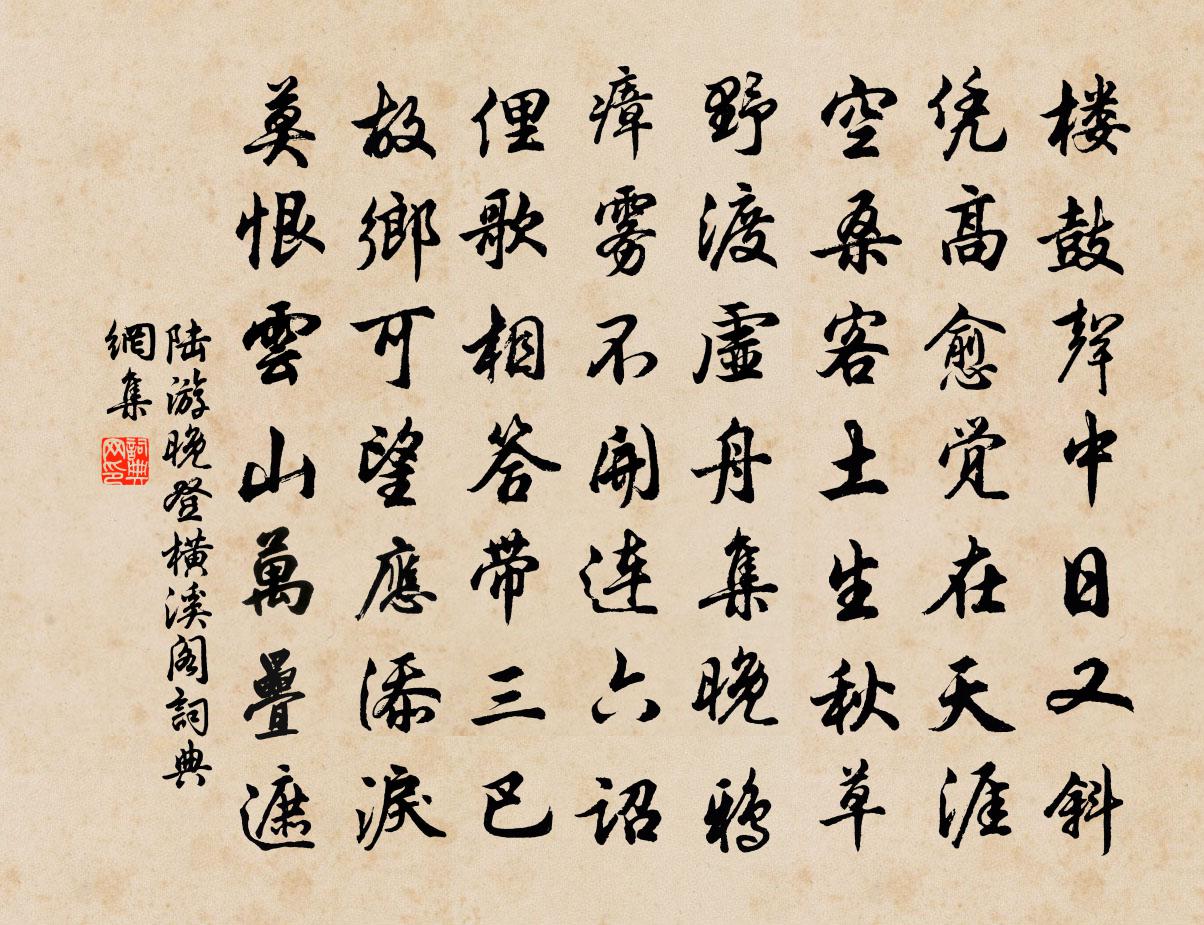 楼鼓聲中日又斜
凭高愈觉在天涯
空桑客土生秋草
野渡虛舟集晚鴉
瘴雾不開连六詔
俚歌相答带三巴
故鄉可望應添淚
莫恨雲山萬疊遮
陆游晚登横溪阁詞典
網集
詞典
网印